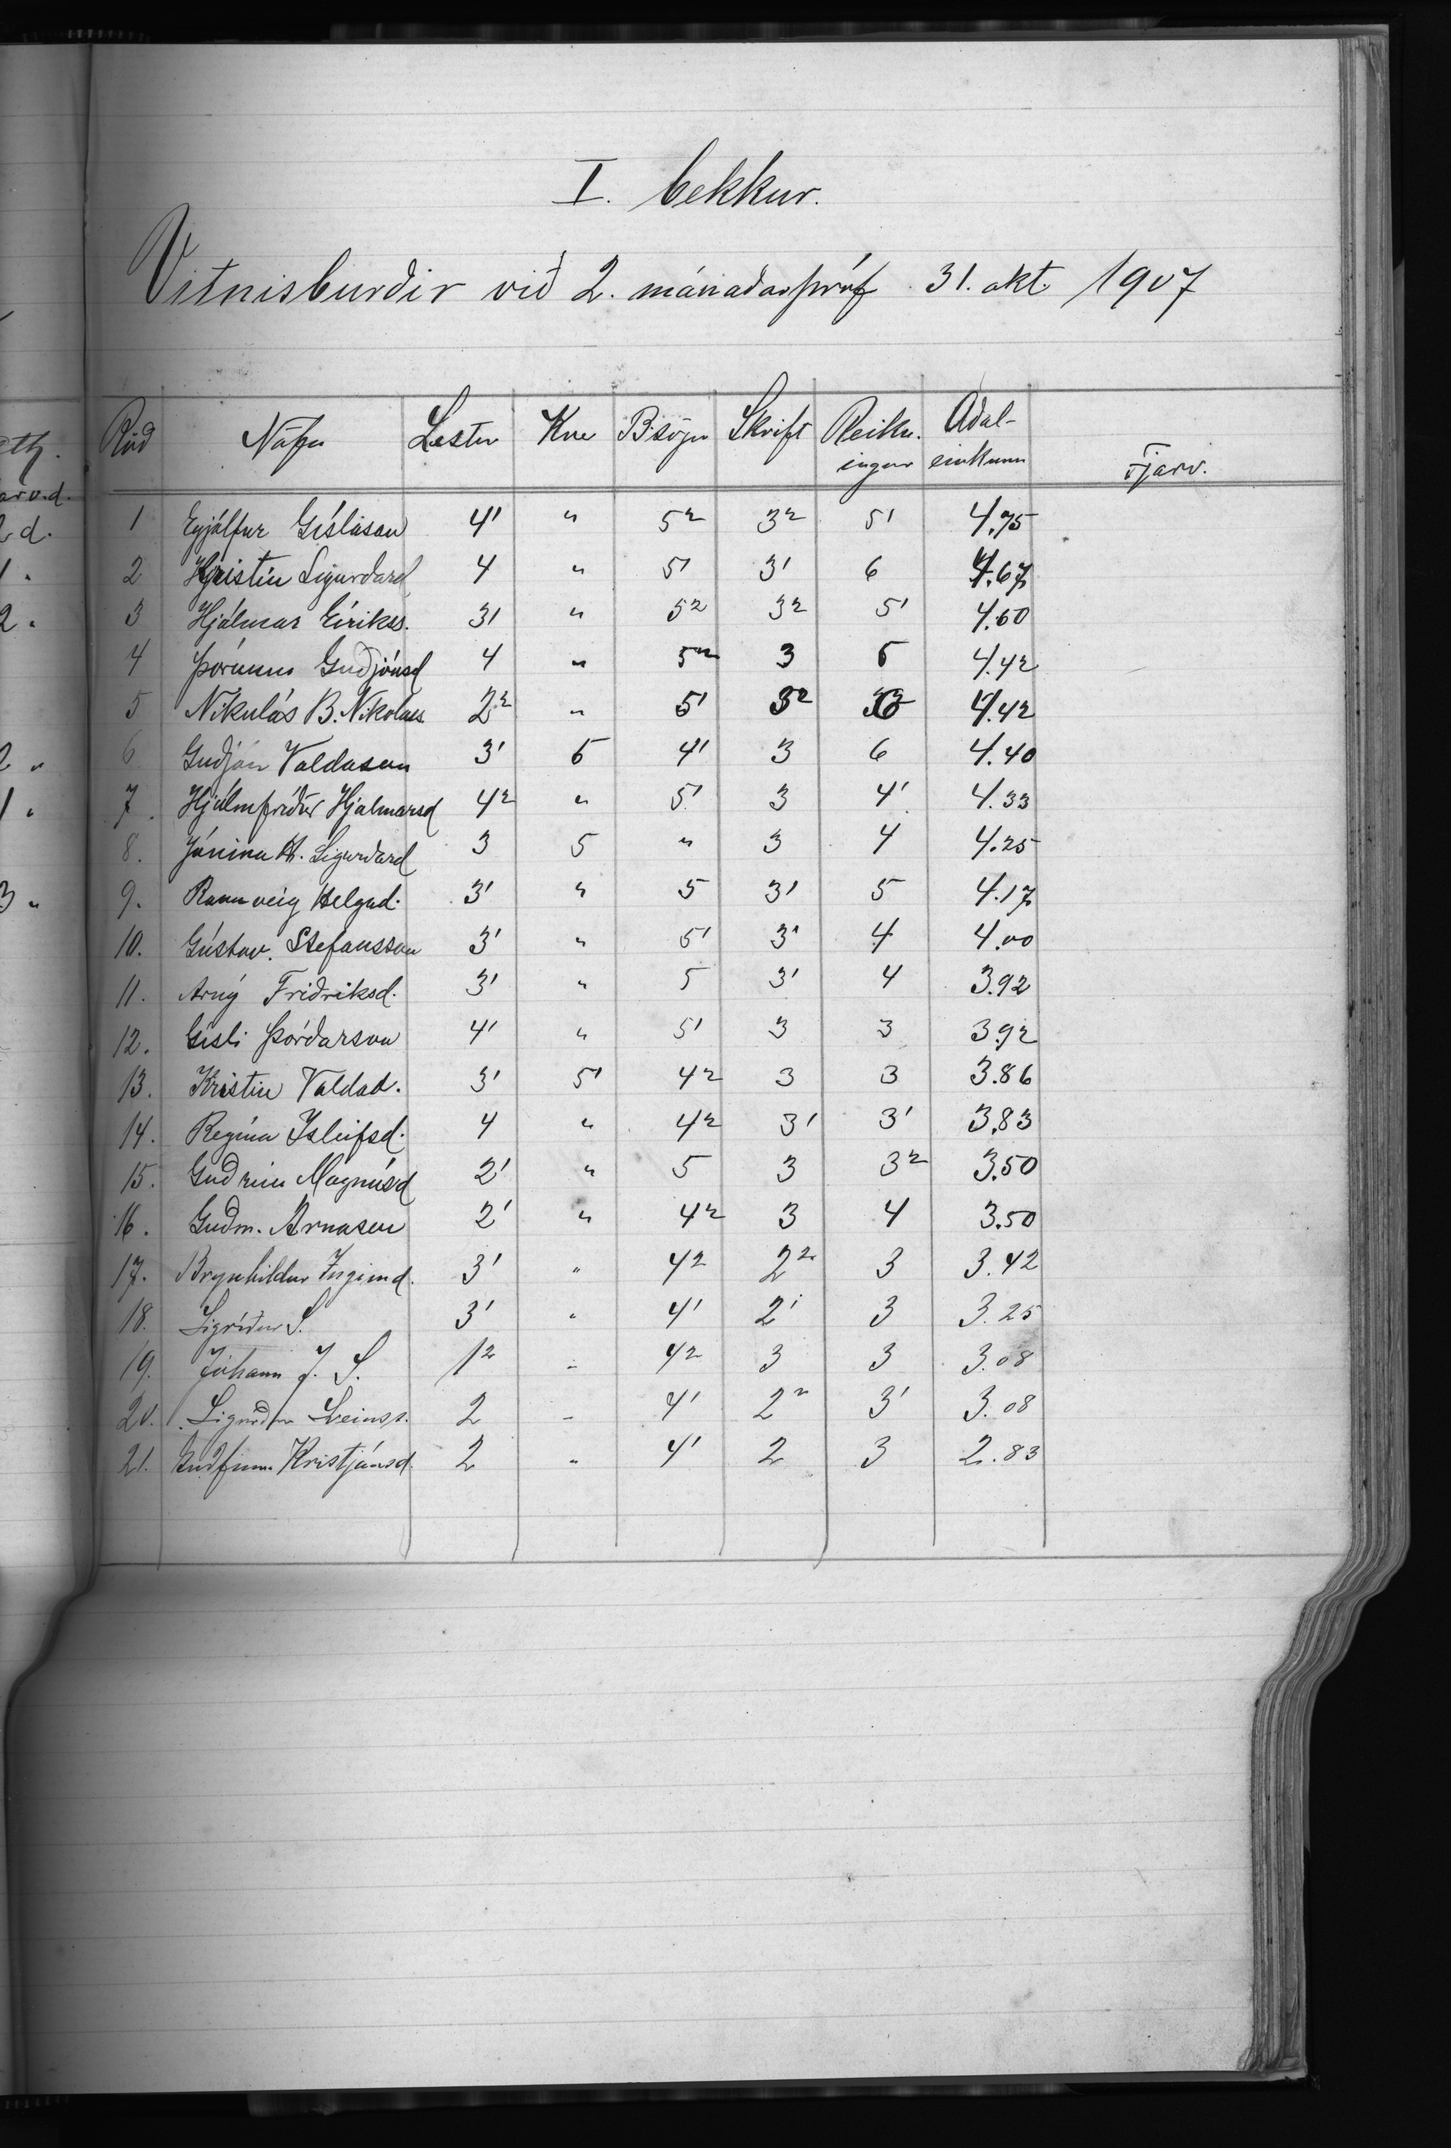 I. bekkur.
Vitnisburðir við 2. mánaðarpróf 31. okt. 1907
Röð Nafn Lestur Kve B.sögur Skrift Reikn-ingur Aðal-einkunn Fjarv.
1 Eyjólfur Gíslason 4¹ " 5² 3² 5¹ 4.75
2 Kristín Sigurðard 4 " 5¹ 3¹ 6 4.67
3 Hjálmar Eirikss. 3¹ " 5² 3² 5¹ 4.60
4 Þórunn Guðjónsd 4 " 5² 3 5 4.42
5 Nikulás B. Nikolass 2² " 5¹ 3² 4.42
6 Guðjón Valdason 3¹ 5 4¹ 3 6 4.40
7. Hjálmfríður Hjalmarsd 4² " 5¹ 3 4¹ 4.33
8. Jónina Sigurdard 3 5 " 3 4 4.25
9. Rannveig Helgad. 3¹ " 5 3¹ 5 4.17
10. Gústav. Stefansson 3¹ " 5¹ 3¹ 4 4.00
11. Arný Friðriksd. 3¹ " 5 3¹ 4 3.92
12. Gísli Þórðarson 4¹ " 5¹ 3 3 3.92
13. Kristin Valdad. 3¹ 5¹ 4² 3 3 3.86
14. Regina Isleifsd. 4 " 4² 3¹ 3¹ 3.83
15. Guðrún Magnúsd 2¹ " 5 3 3² 3.50
16. Guðm. Arnason 2¹ " 4² 3 4 3.50
17. Brynhildur Ingimd. 3¹ " 4² 2² 3 3.42
18. Sigríður S. 3¹ " 4¹ 2¹ 3 3.25
19. Jóhann J. S. 1² " 4² 3 3 3.08
20. Sigurður Sveinss. 2 " 4¹ 2² 3¹ 3.08
21. Guðfinna Kristjánsd. 2 " 4¹ 2 3 2.83